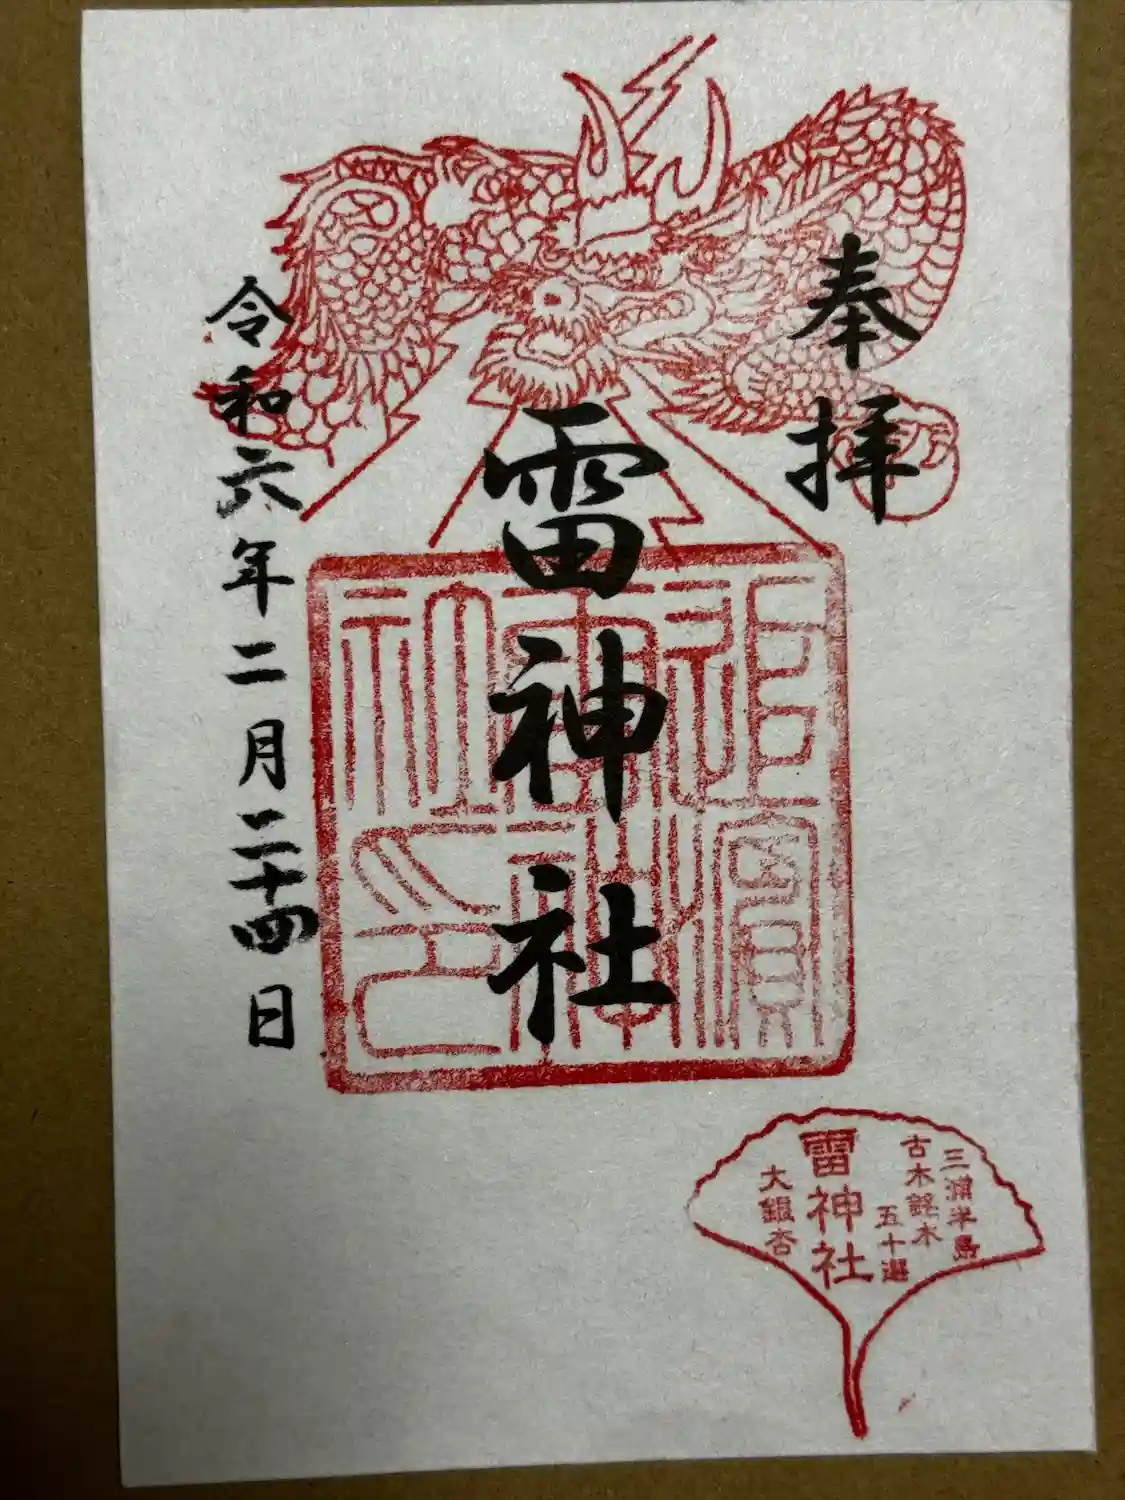 奉拝
雷神社
令和六年二月二十四日
追濱
雷神
社印
三浦半島
古木銘木
五十選
雷神社
大銀杏